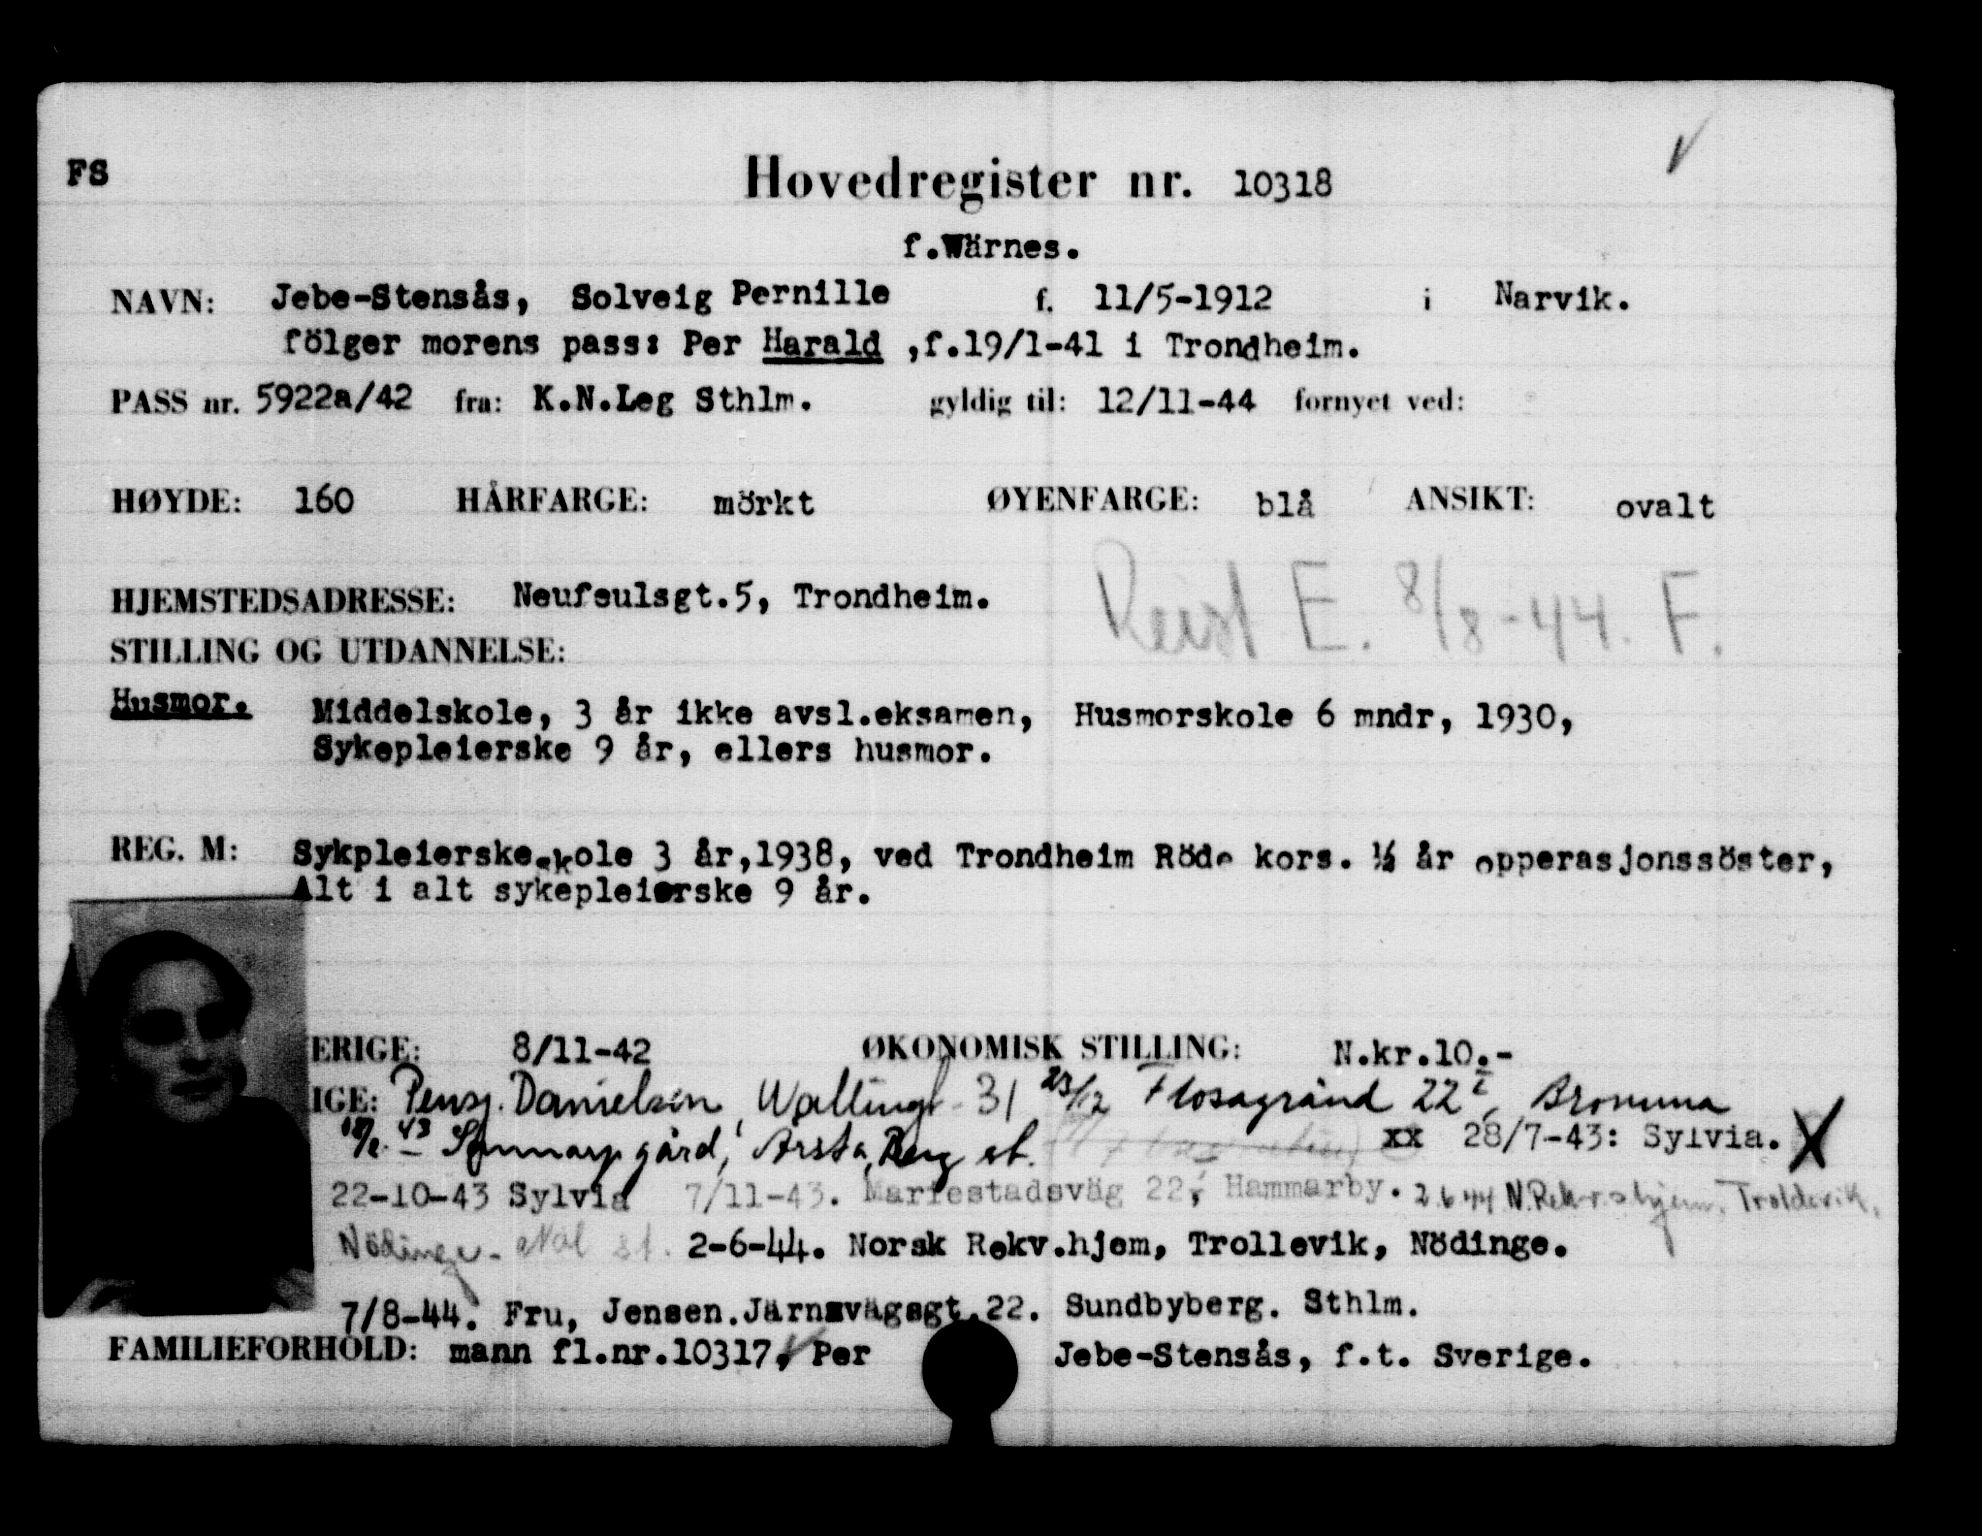 FS
Hovedregister nr. 10318
f.Wärnes.
NAVN: Jebe-Stensås, Solveig Pernille f. 11/5-1912 i Narvik.
fölger morens pass: Per Harald ,f.19/1-41 i Trondheim.
PASS nr. 5922a/42 fra: K.N.Leg Sthlm. gyldig til: 12/11-44 fornyet ved:
HØYDE: 160 HÅRFARGE: mörkt ØYENFARGE: blå ANSIKT: ovalt
HJEMSTEDSADRESSE: Neufeulsgt.5, Trondheim.
Reist E. 8/8-44. F.
STILLING OG UTDANNELSE:
Husmor. Middelskole, 3 år ikke avsl.eksamen, Husmorskole 6 mndr, 1930,
Sykepleierske 9 år, ellers husmor.
REG. M: Sykpleierskeskole 3 år,1938, ved Trondheim Röde kors. ½ år opperasjonssöster,
Alt i alt sykepleierske 9 år.
ERIGE: 8/11-42 ØKONOMISK STILLING: N.kr.10.-
IGE: Pensj. Danielsen, Wallingt. 31 23/12 Flosagränd 22 I, Bromma
gård, Årsta, Berg st. xx 28/7-43: Sylvia. X
22-10-43 Sylvia 7/11-43. Mariestadsväg 22, Hammarby. 2.6.44 N. Troldevik,
Nödinge - Nol st. 2-6-44. Norsk Rekv.hjem, Trollevik, Nödinge.
7/8-44. Fru, Jensen.Järnsvägsgt.22. Sundbyberg. Sthlm.
FAMILIEFORHOLD: mann fl.nr.10317, Per Jebe-Stensås, f.t. Sverige.